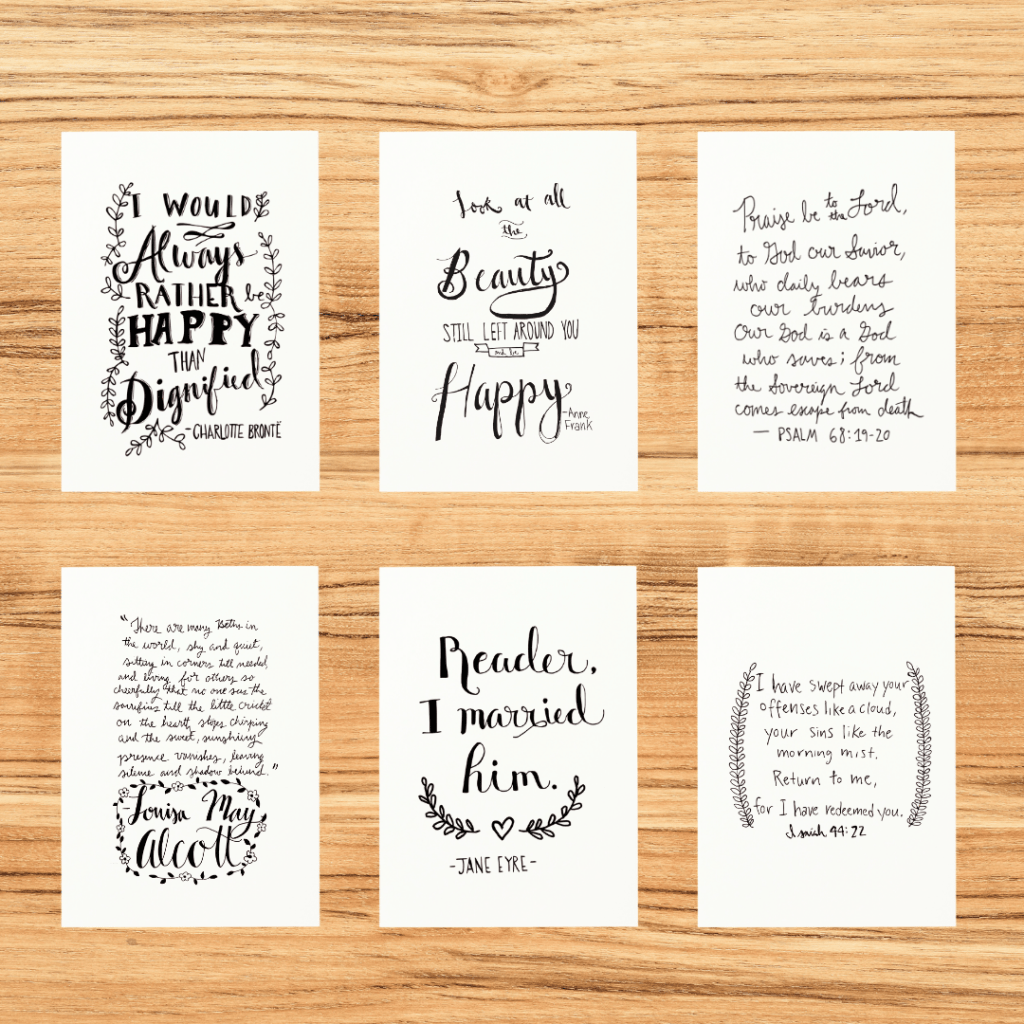 I WOULD
Always
RATHER be
HAPPY
THAN
Dignified
-CHARLOTTE BRONTË
Look at all
the
Beauty
STILL LEFT AROUND YOU
and be
Happy
-Anne
Frank
Praise be to the Lord,
to God our Savior,
who daily bears
our burdens
Our God is a God
who saves; from
the Sovereign Lord
comes escape from death
— PSALM 68:19-20
"There are many Beths in
the world, shy and quiet,
sitting in corners till needed,
and living for others so
cheerfully that no one sees the
sacrifices till the little cricket
on the hearth stops chirping
and the sweet, sunshiny
presence vanishes, leaving
silence and shadow behind."
Louisa May
Alcott
Reader,
I married
him.
-JANE EYRE-
I have swept away your
offenses like a cloud,
your sins like the
morning mist.
Return to me,
for I have redeemed you.
Isaiah 44:22